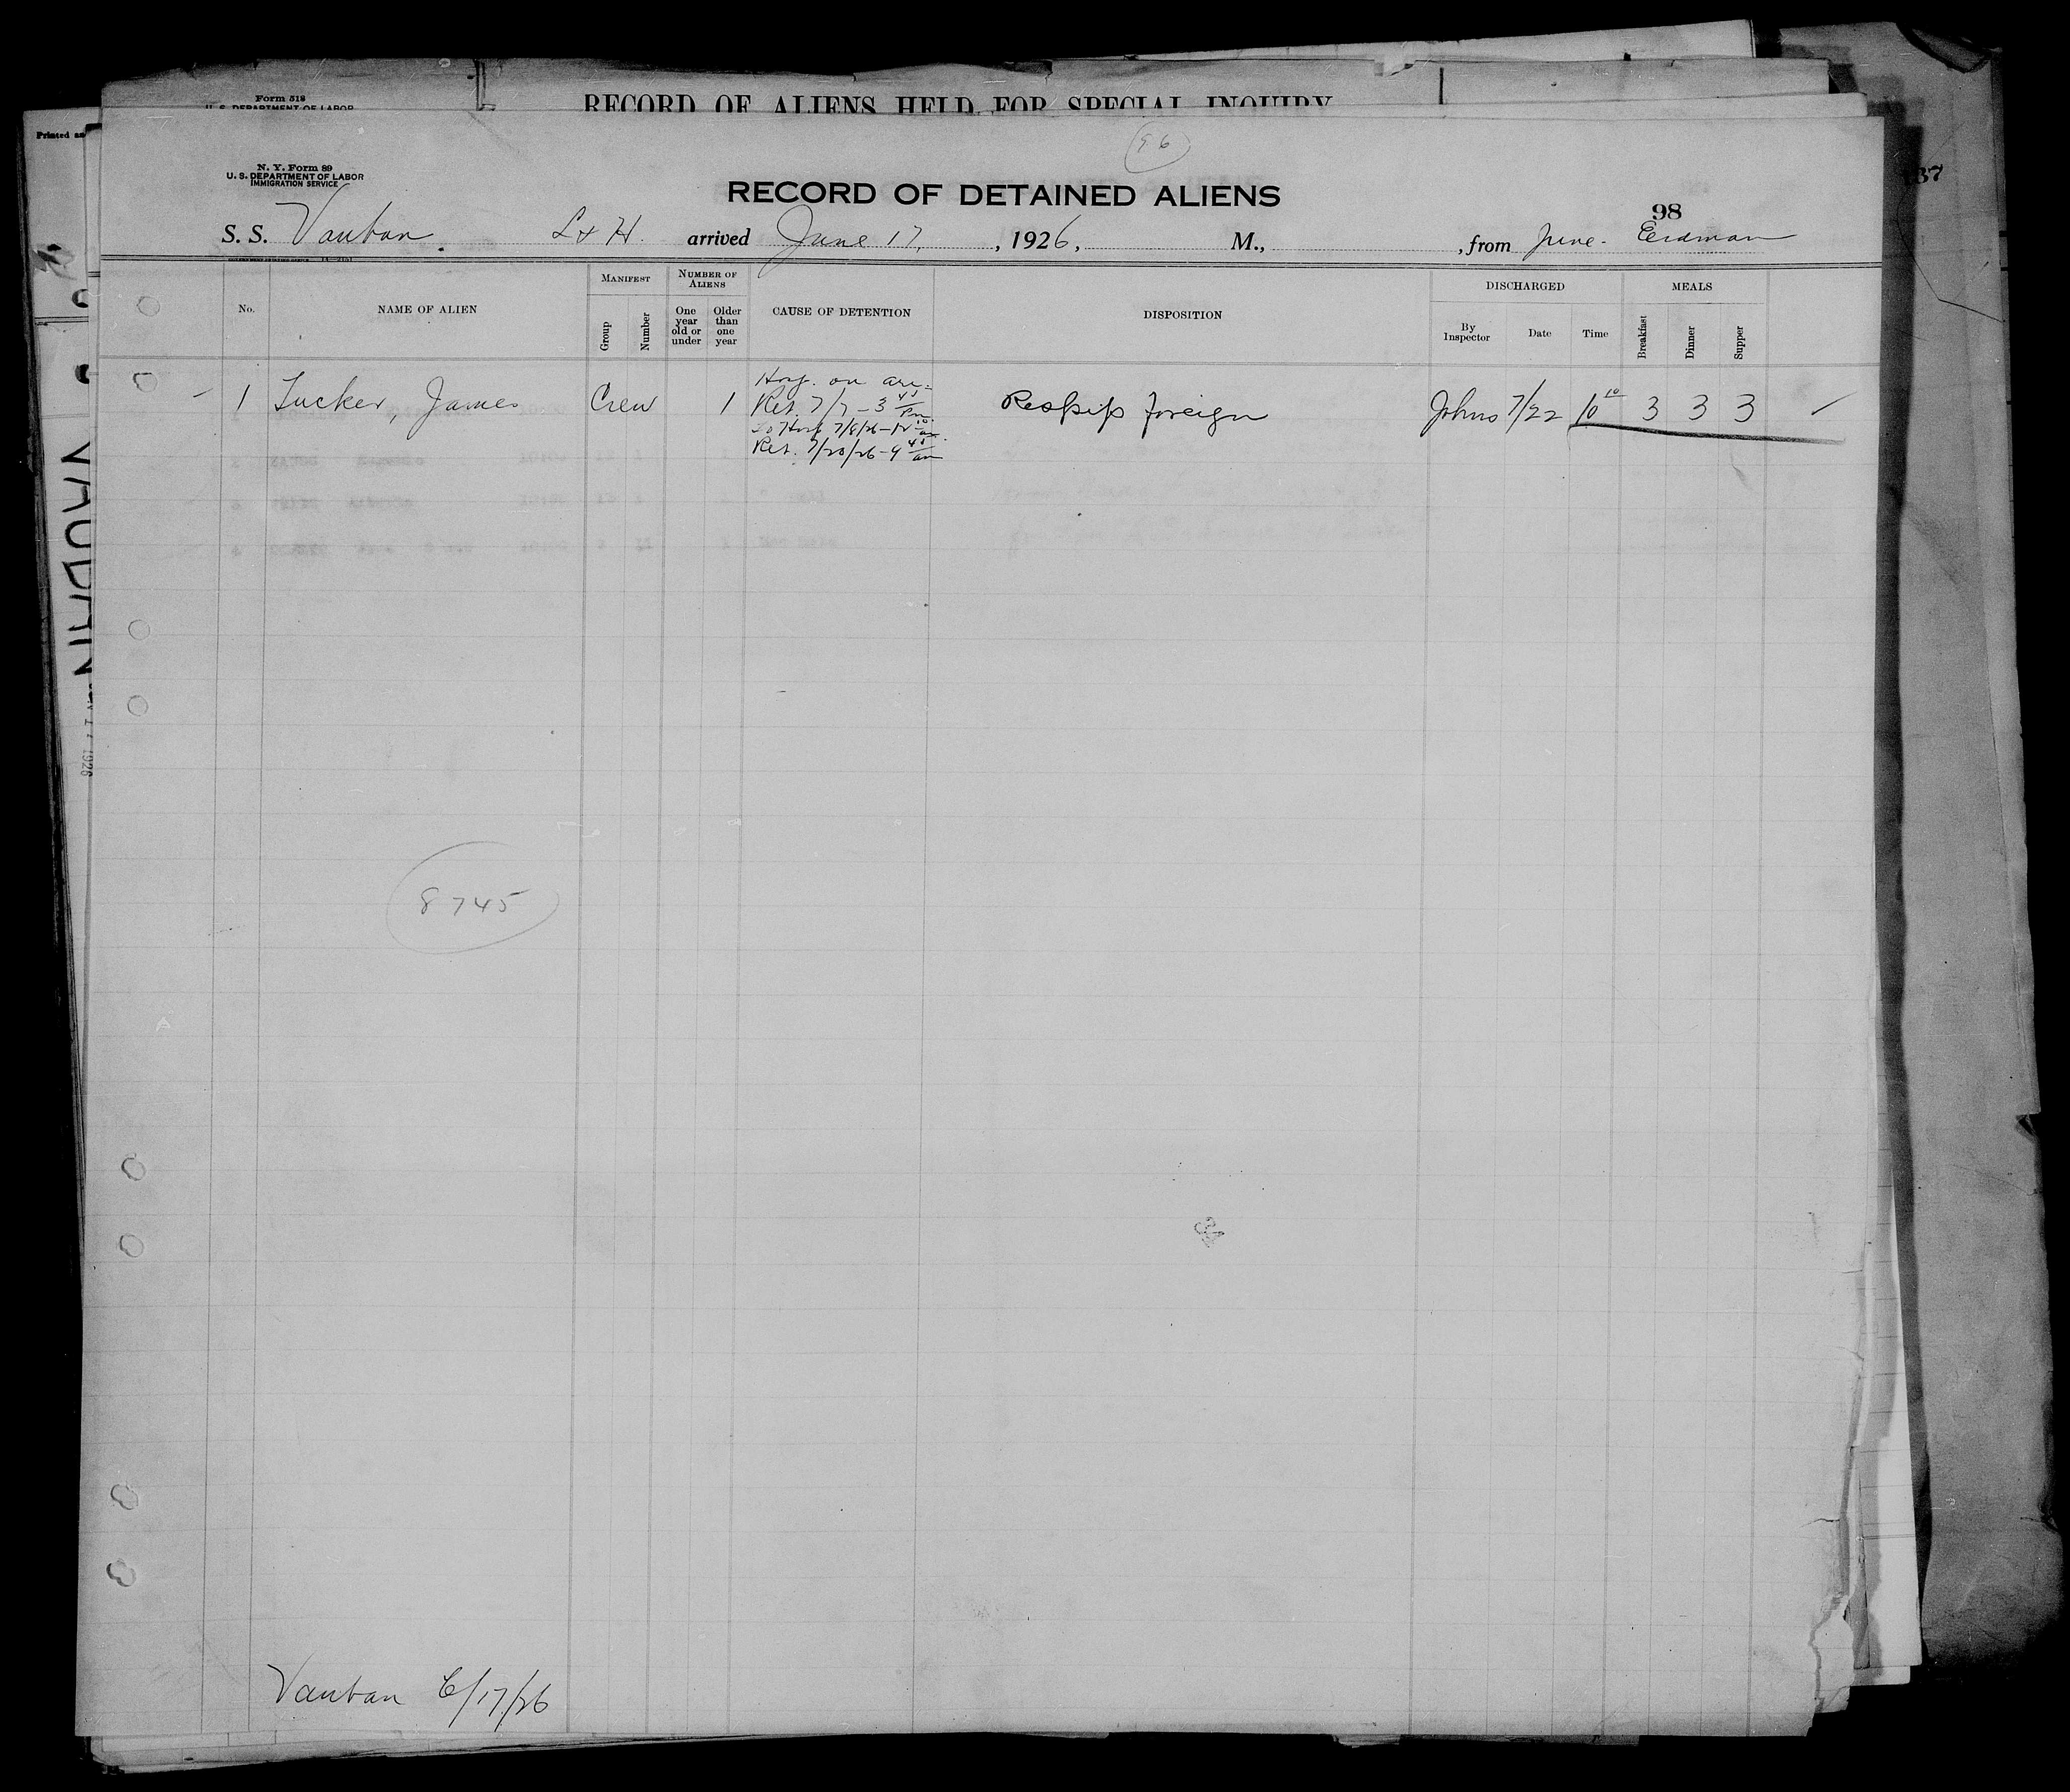 Form 518
U. S. DEPARTMENT OF LABOR
RECORD OF ALIENS HELD FOR SPECIAL INQUIRY
Printed
96
N. Y. Form 89
U. S. DEPARTMENT OF LABOR
IMMIGRATION SERVICE
RECORD OF DETAINED ALIENS
37
98
S. S. Vauban. L & H. arrived June 17, , 1926, M., , from June - Erdman
MANIFEST NUMBER OF ALIENS DISCHARGED MEALS
No. NAME OF ALIEN Group Number One year old or under Older than one year CAUSE OF DETENTION DISPOSITION By Inspector Date Time Breakfast Dinner Supper
Hosp. on arr.
1 Tucker, James Crew 1 Ret. 7/7 - 3 45 pm Reship foreign Johns 7/22 10 10 3 3 3 ✓
To Hosp 7/8/26 - 12 10 am
Ret. 7/20/26 - 9 45 am
VAUBAN
1926
8745
Vauban 6/17/26